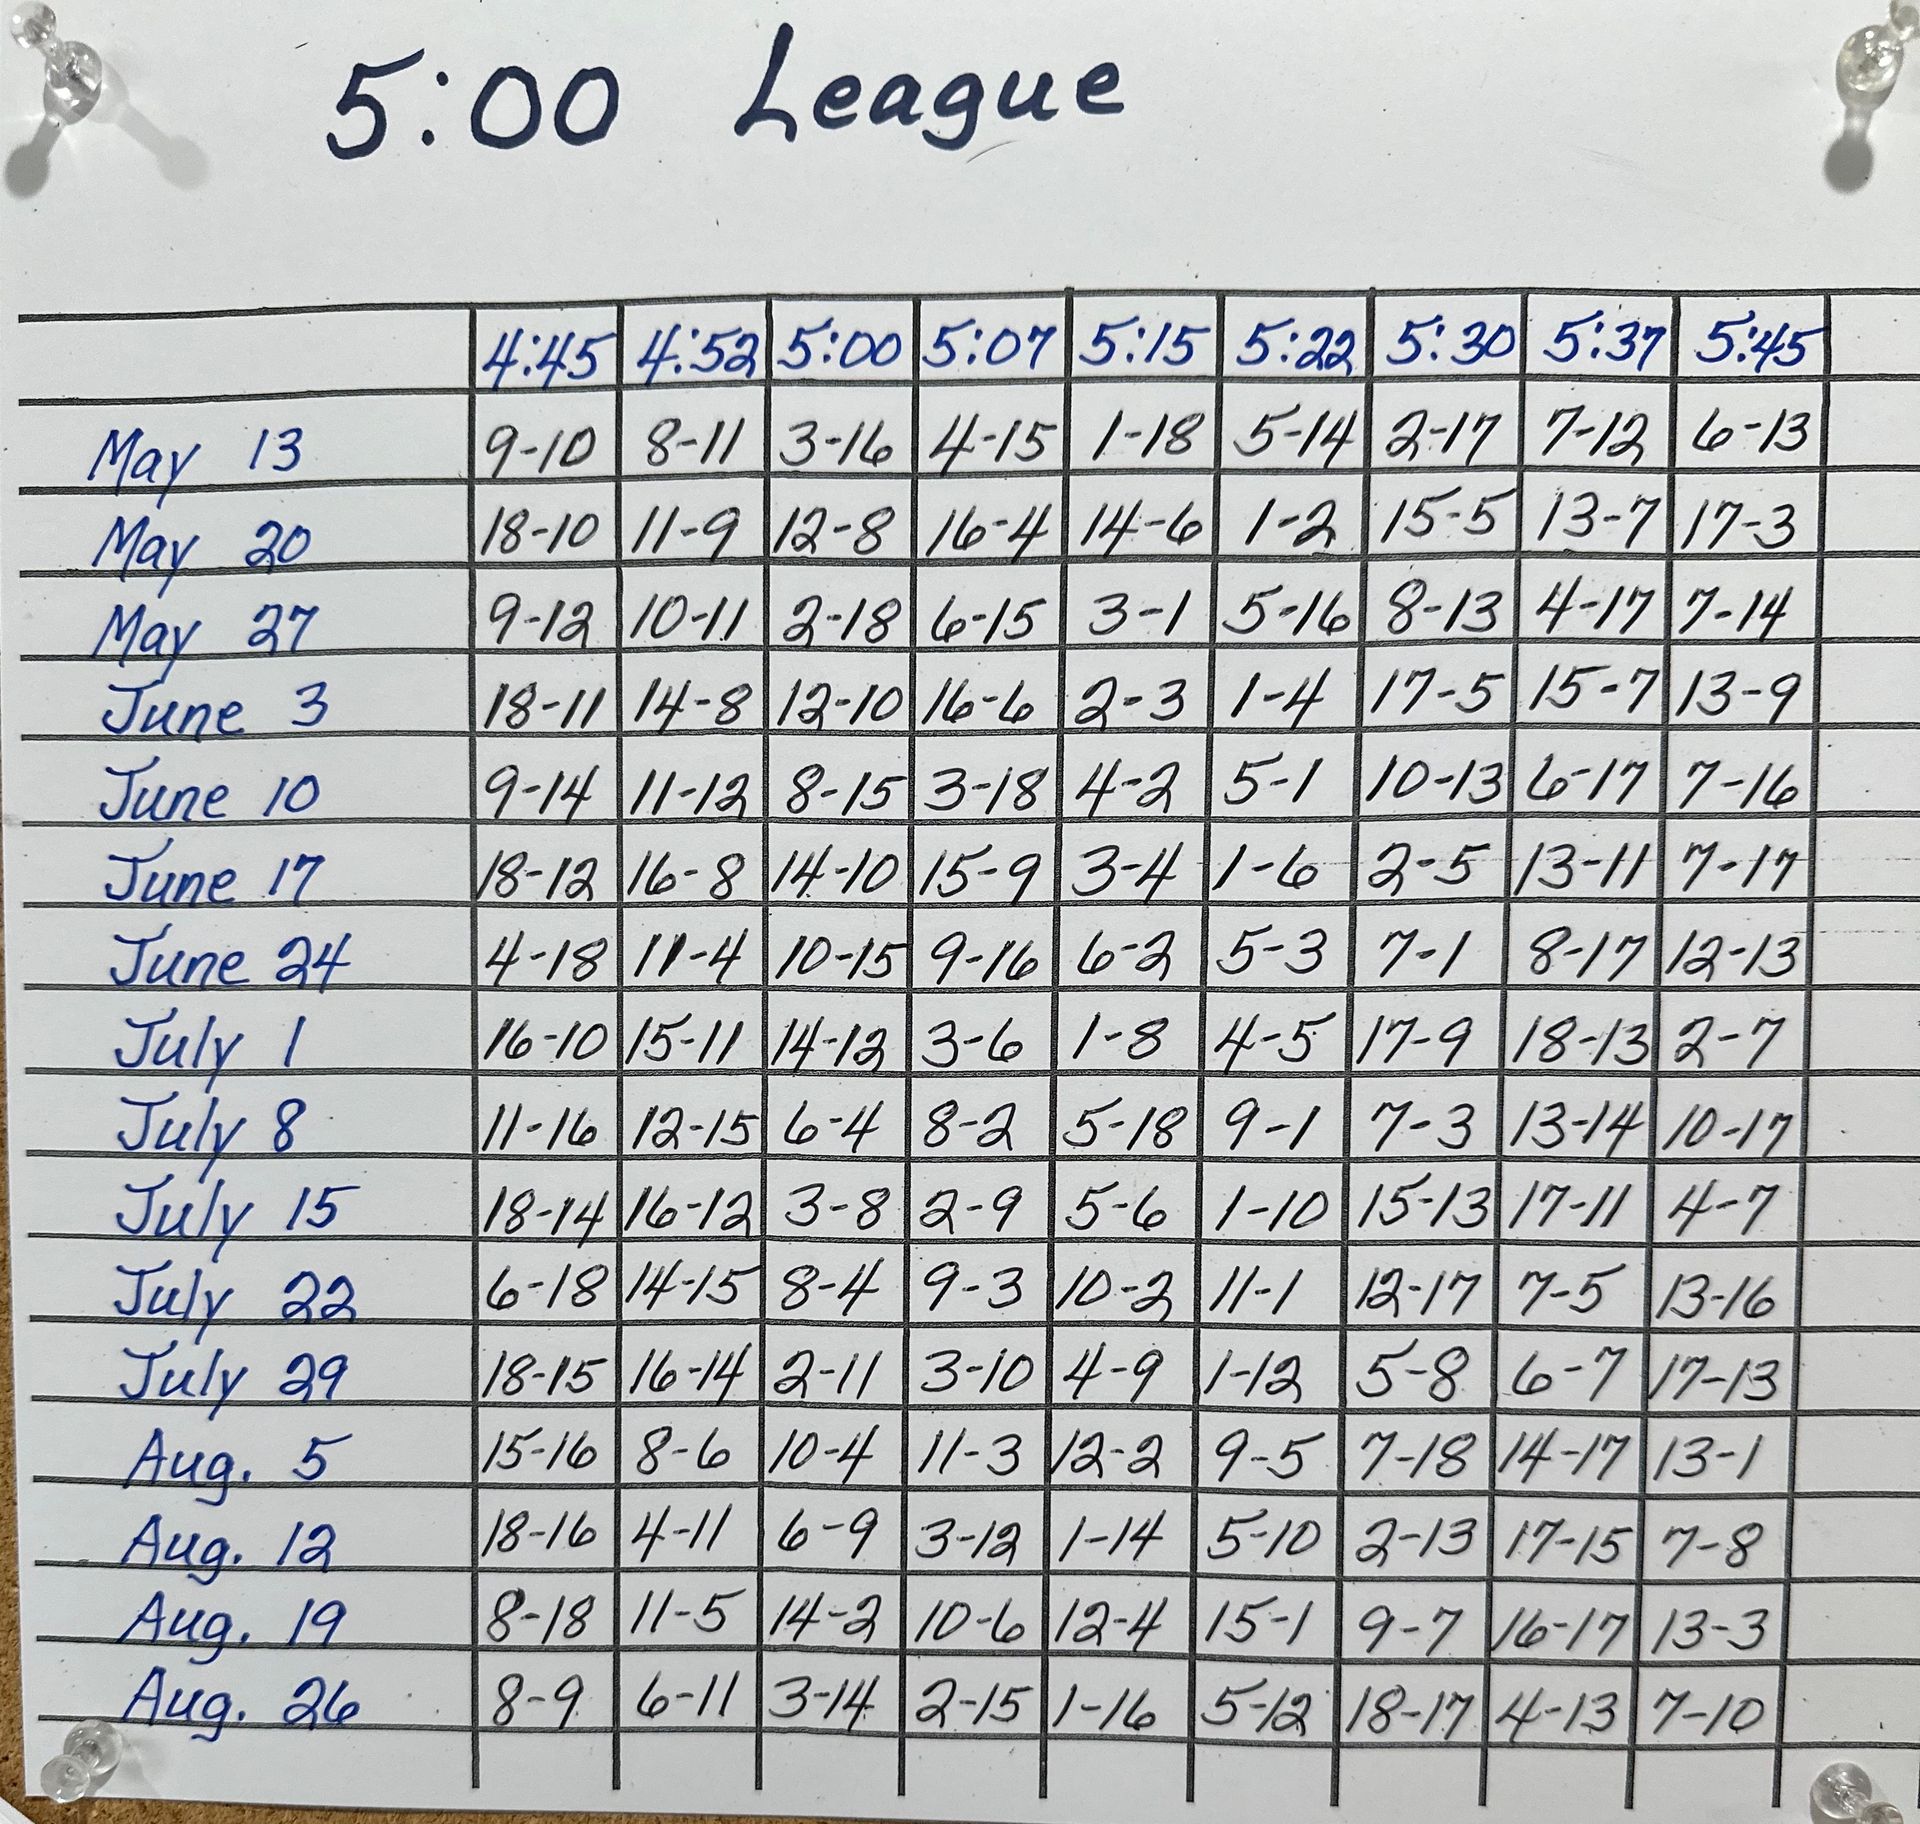 5:00 League
4:45 4:52 5:00 5:07 5:15 5:22 5:30 5:37 5:45
May 13 9-10 8-11 3-16 4-15 1-18 5-14 2-17 7-12 6-13
May 20 18-10 11-9 12-8 16-4 14-6 1-2 15-5 13-7 17-3
May 27 9-12 10-11 2-18 6-15 3-1 5-16 8-13 4-17 7-14
June 3 18-11 14-8 12-10 16-6 2-3 1-4 17-5 15-7 13-9
June 10 9-14 11-12 8-15 3-18 4-2 5-1 10-13 6-17 7-16
June 17 18-12 16-8 14-10 15-9 3-4 1-6 2-5 13-11 7-17
June 24 4-18 11-4 10-15 9-16 6-2 5-3 7-1 8-17 12-13
July 1 16-10 15-11 14-12 3-6 1-8 4-5 17-9 18-13 2-7
July 8 11-16 12-15 6-4 8-2 5-18 9-1 7-3 13-14 10-17
July 15 18-14 16-12 3-8 2-9 5-6 1-10 15-13 17-11 4-7
July 22 6-18 14-15 8-4 9-3 10-2 11-1 12-17 7-5 13-16
July 29 18-15 16-14 2-11 3-10 4-9 1-12 5-8 6-7 17-13
Aug. 5 15-16 8-6 10-4 11-3 12-2 9-5 7-18 14-17 13-1
Aug. 12 18-16 4-11 6-9 3-12 1-14 5-10 2-13 17-15 7-8
Aug. 19 8-18 11-5 14-2 10-6 12-4 15-1 9-7 16-17 13-3
Aug. 26 8-9 6-11 3-14 2-15 1-16 5-12 18-17 4-13 7-10